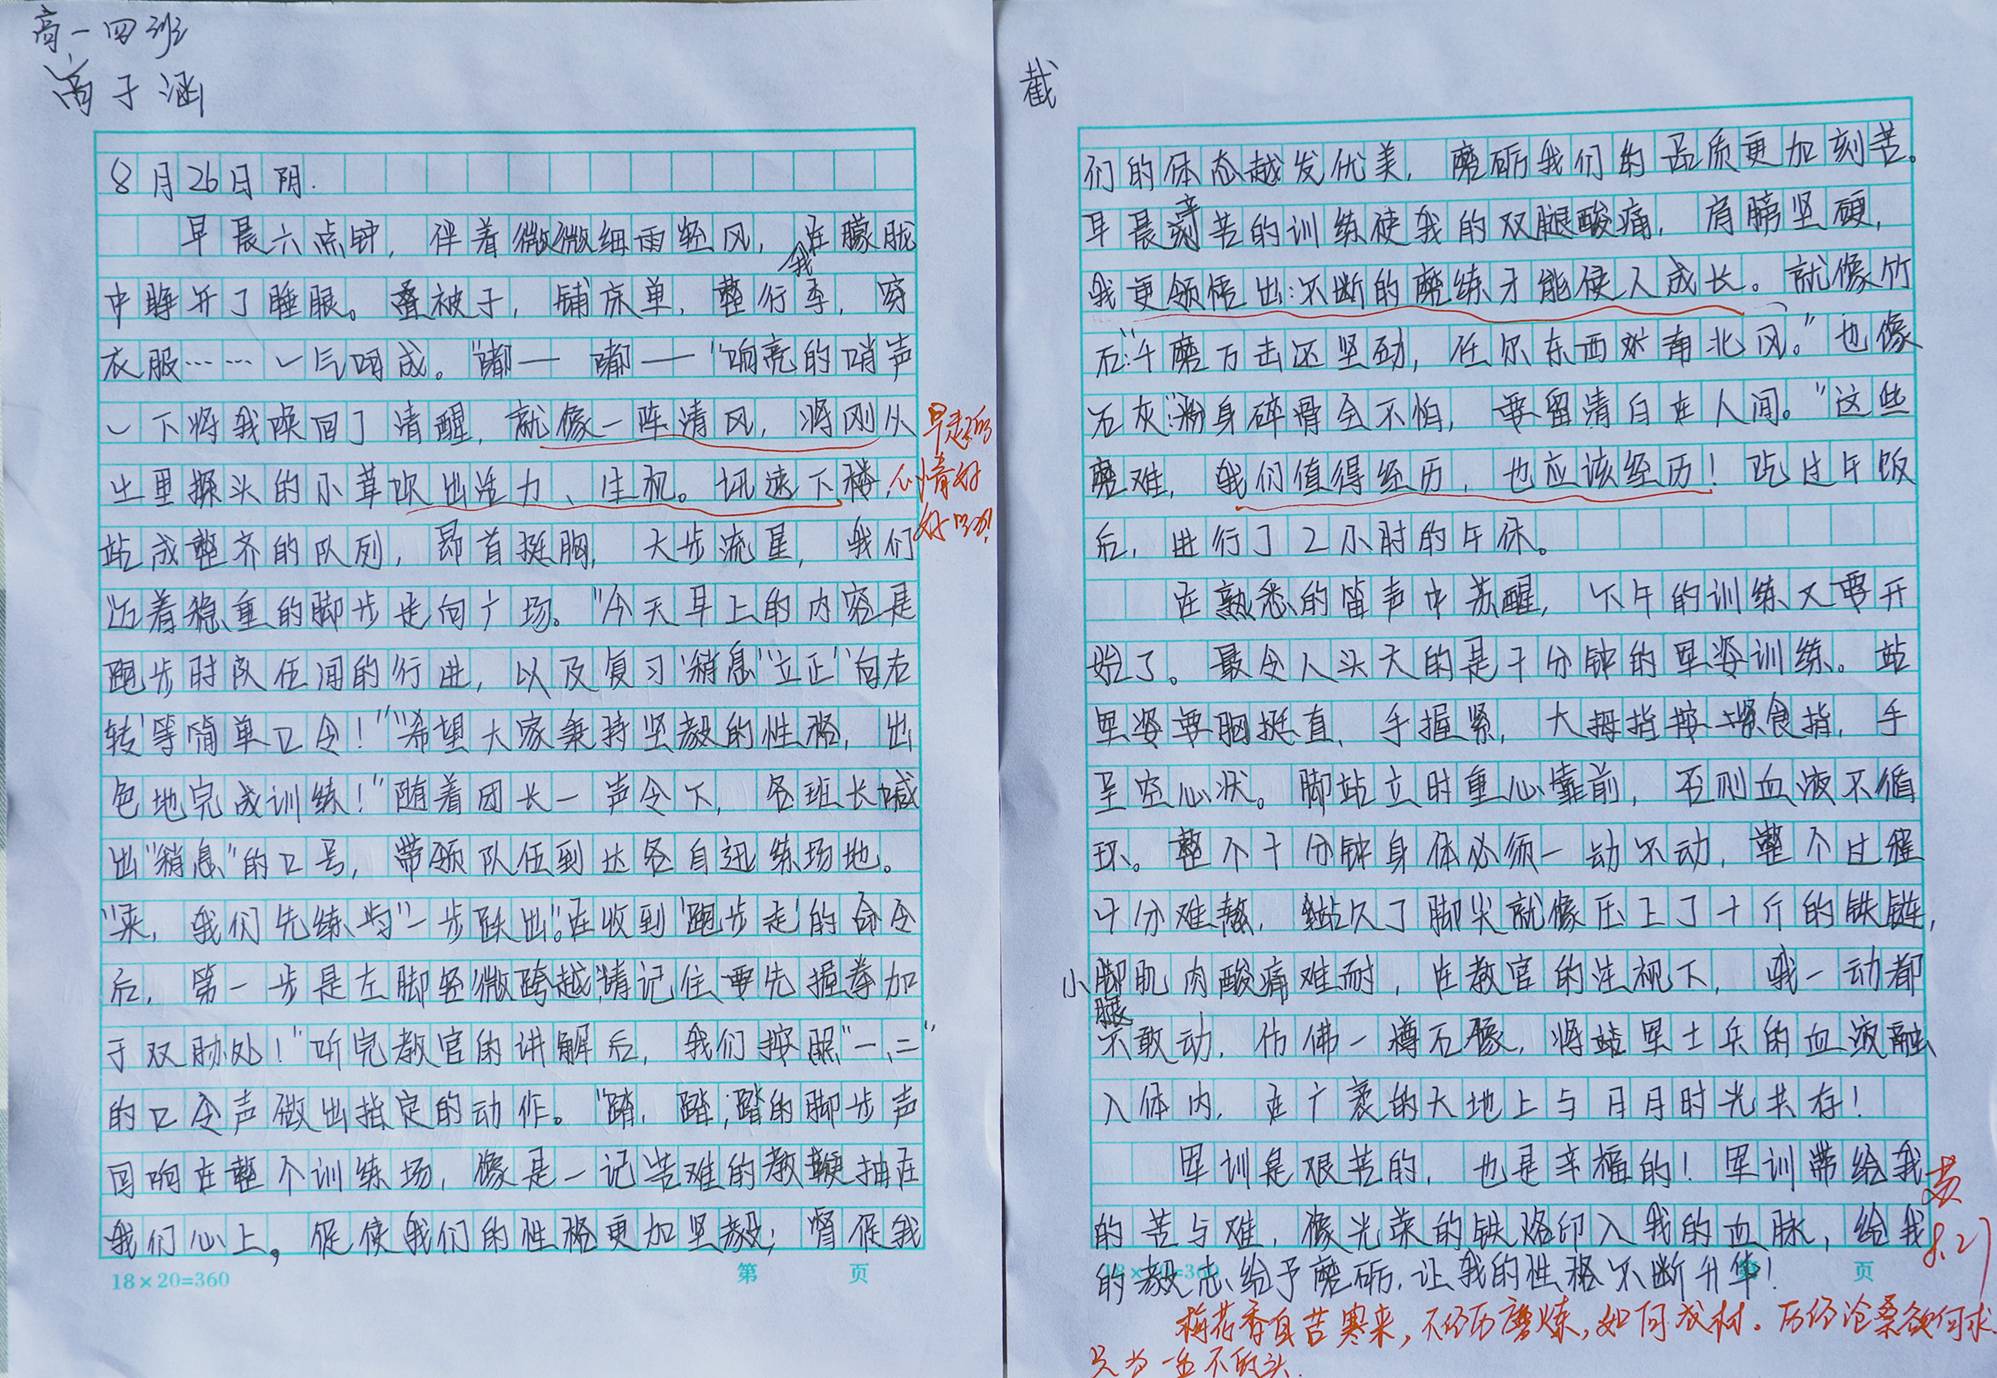 高一四班
高子涵
8月26日 阴.
早晨六点钟，伴着微微细雨轻风，我在朦胧
中睁开了睡眼。叠被子，铺床单，整行李，穿
衣服……一气呵成。“嘟— 嘟—”响亮的哨声
一下将我唤回了清醒，就像一阵清风，将刚从
土里探头的小草吹出活力、生机。迅速下楼，
站成整齐的队列，昂首挺胸，大步流星，我们
迈着稳重的脚步走向广场。“今天早上的内容是
跑步时队伍间的行进，以及复习‘稍息’‘立正’‘向右
转’等简单口令！”“希望大家秉持坚毅的性格，出
色地完成训练！”随着团长一声令下，各班长喊
出“稍息”的口号，带领队伍到达各自训练场地。
“来，我们先练均“一步跃出”。在收到‘跑步走’的命令
后，第一步是左脚轻微跨越，请记住要先握拳加
于双肋处！”听完教官的讲解后，我们按照“一、二”
的口令声做出指定的动作。“踏，踏，踏的脚步声
回响在整个训练场，像是一记苦难的教鞭抽在
我们心上。促使我们的性格更加坚毅；督促我
早起的
心情好
好吗！
截
们的体态越发优美，磨砺我们的品质更加刻苦。
早晨辛苦的训练使我的双腿酸痛，肩膀坚硬，
我更领悟出：不断的磨练才能使人成长。就像竹
石：“千磨万击还坚劲，任尔东西南北风。”也像
石灰：“粉身碎骨全不怕，要留清白在人间。”这些
磨难，我们值得经历，也应该经历！吃过午饭
后，进行了2小时的午休。
在熟悉的笛声中苏醒，下午的训练又要开
始了。最令人头大的是十分钟的军姿训练。站
军姿要胸挺直，手握紧，大拇指按紧食指，手
呈空心状。脚站立时重心靠前，否则血液不循
环。整个十分钟身体必须一动不动，整个过程
十分难熬，站久了脚尖就像压上了十斤的铁链，
小腿肌肉酸痛难耐，在教官的注视下，我一动都
不敢动，仿佛一樽石像，将军士兵的血液融
入体内，在广袤的大地上与日月时光共存！
军训是艰苦的，也是幸福的！军训带给我
的苦与难，像光荣的铁烙印入我的血脉，给我
的毅志给予磨砺，让我的性格不断升华！
8.27
梅花香自苦寒来，不经历磨炼，如何成材。历经沧桑欲何求
只为一生不低头.
18×20=360
第 页
18×20=360
第 页